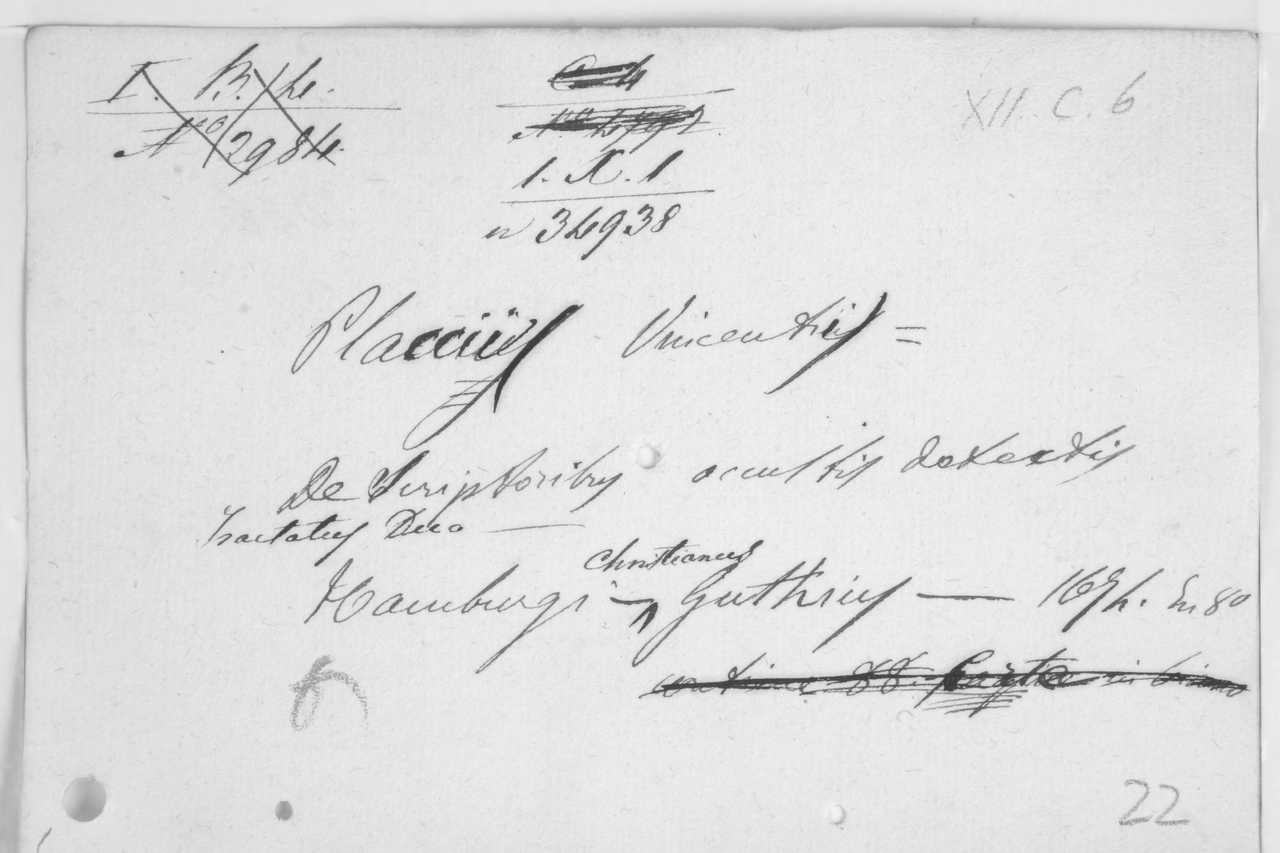 I. B. 4.
Nº 2984.
C 4
XII. C. 6
1. X. 1
n 34938
Placcius Vincentius =
De Scriptoribus occultis detectis
Tractatus Duo —
Christianus
Hamburgi — Guthrius — 1674. In 8º
22